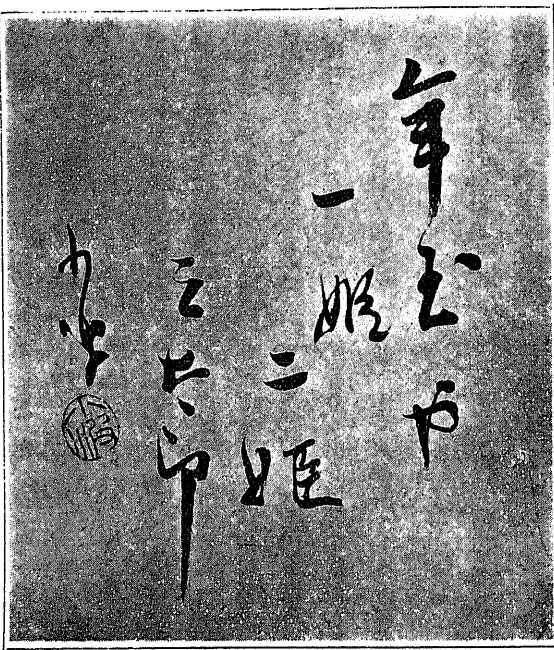 年玉や
一姫
二姫
三太郎
小波